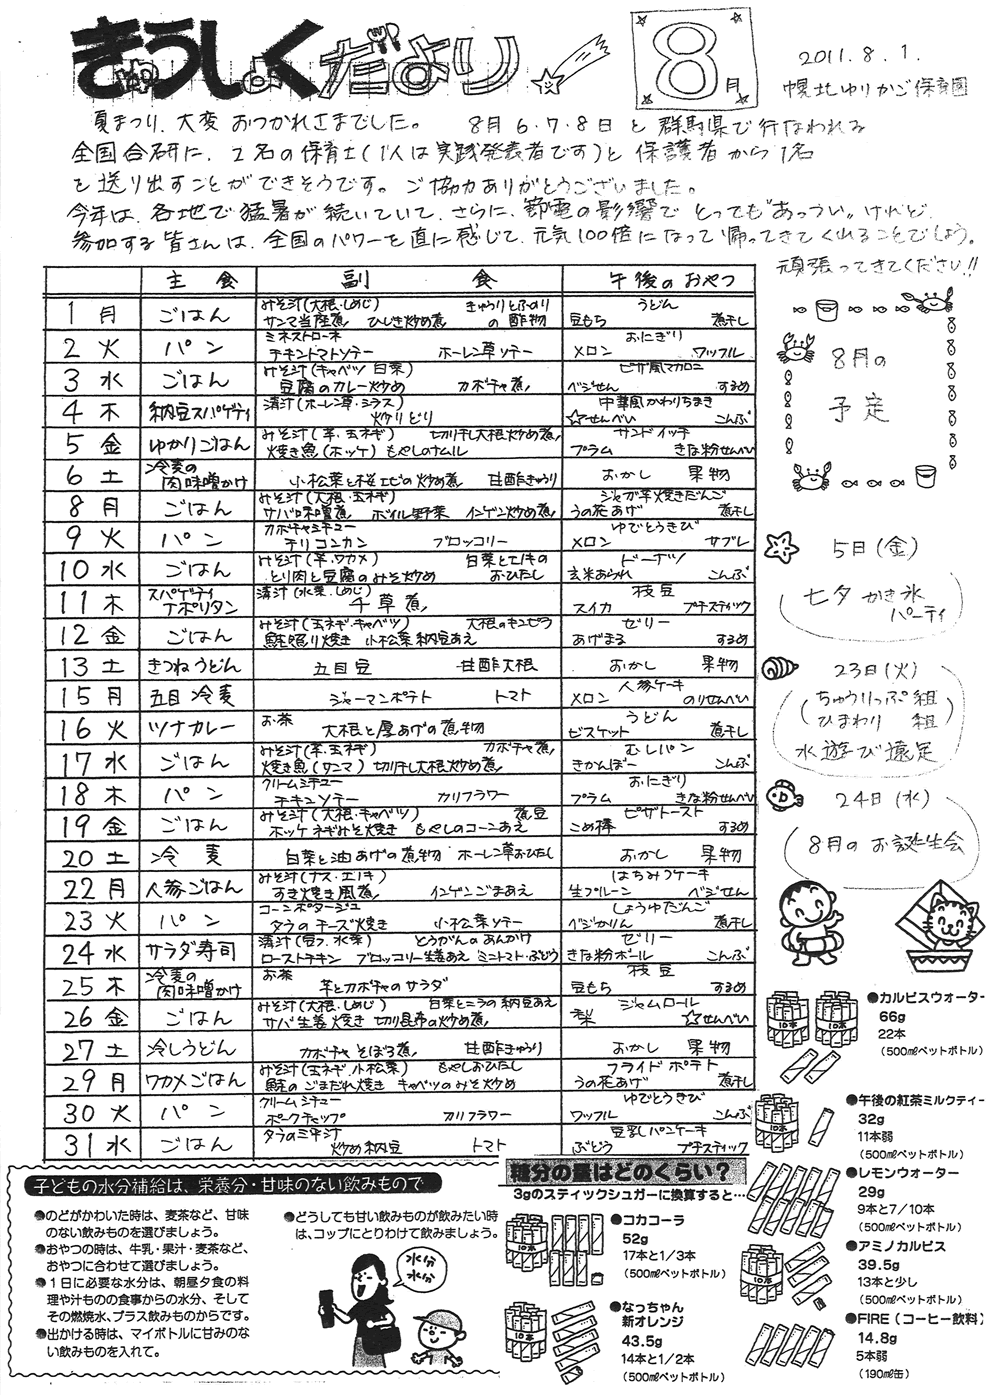 きゅうしょくだより
8月
2011.8.1.
幌北ゆりかご保育園
夏まつり、大変おつかれさまでした。 8月6・7・8日と群馬県で行なわれる
全国合研に、2名の保育士(1人は実践発表者です)と保護者から1名
を送り出すことができそうです。ご協力ありがとうございました。
今年は、各地で猛暑が続いていて、さらに、節電の影響でとっても"あっつい"けれど、
参加する皆さんは、全国のパワーを直に感じて、元気100倍になって帰ってきてくれることでしょう。
頑張ってきてください!!
主食 副食 午後のおやつ
1 月 ごはん みそ汁(大根・しめじ) きゅうりとふのりの酢物 サンマ当座煮 ひじき炒め煮 うどん 豆もち 煮干し
2 火 パン ミネストローネ チキントマトソテー ホーレン草ソテー おにぎり メロン ワッフル
3 水 ごはん みそ汁(キャベツ 白菜) 豆腐のカレー炒め カボチャ煮 ピザ風マカロニ ベジせん するめ
4 木 納豆スパゲティ 清汁(ホーレン草・シラス) 炒りどり 中華風かわりちまき ☆せんべい こんぶ
5 金 ゆかりごはん みそ汁(芋、玉ネギ) 切り干し大根炒め煮 焼き魚(ホッケ) もやしのナムル サンドイッチ プラム きな粉せんべい
6 土 冷麦の肉味噌かけ 小松菜と桜エビの炒め煮 甘酢きゅうり おかし 果物
8 月 ごはん みそ汁(大根・玉ネギ) サバ味噌煮 ボイル野菜 インゲン炒め煮 ジャガ芋焼きだんご うの花あげ 煮干し
9 火 パン カボチャシチュー チリコンカン ブロッコリー ゆでとうきび メロン サブレ
10 水 ごはん みそ汁(芋、ワカメ) 白菜とエノキのおひたし とり肉と豆腐のみそ炒め ドーナツ 玄米あられ こんぶ
11 木 スパゲティナポリタン 清汁(水菜・しめじ) 千草煮 枝豆 スイカ プチスティック
12 金 ごはん みそ汁(玉ネギ・キャベツ) 大根のキンピラ 鮭照り焼き 小松菜納豆あえ ゼリー あげまる するめ
13 土 きつねうどん 五目豆 甘酢大根 おかし 果物
15 月 五目冷麦 ジャーマンポテト トマト 人参ケーキ メロン のりせんべい
16 火 ツナカレー お茶 大根と厚あげの煮物 うどん ビスケット 煮干し
17 水 ごはん みそ汁(芋、玉ネギ) カボチャ煮 焼き魚(サンマ) 切り干し大根炒め煮 むしパン きかんぼー こんぶ
18 木 パン クリームシチュー チキンソテー カリフラワー おにぎり プラム きな粉せんべい
19 金 ごはん みそ汁(大根・キャベツ) 煮豆 ホッケネギみそ焼き もやしのコーンあえ ピザトースト こめ棒 するめ
20 土 冷麦 白菜と油あげの煮物 ホーレン草おひたし おかし 果物
22 月 人参ごはん みそ汁(ナス・エノキ) すき焼き風煮 インゲンごまあえ はちみつケーキ 生プルーン ベジせん
23 火 パン コーンポタージュ タラのチーズ焼き 小松菜ソテー しょうゆだんご ベジかりん 煮干し
24 水 サラダ寿司 清汁(豆フ、水菜) とうがんのあんかけ ローストチキン ブロッコリー生姜あえ ミニトマト・ぶどう ゼリー きな粉ボール こんぶ
25 木 冷麦の肉味噌かけ お茶 芋とカボチャのサラダ 枝豆 豆もち するめ
26 金 ごはん みそ汁(大根・しめじ) 白菜とニラの納豆あえ サバ生姜焼き 切り昆布の炒め煮 ジャムロール 梨 ☆せんべい
27 土 冷しうどん カボチャそぼろ煮 甘酢きゅうり おかし 果物
29 月 ワカメごはん みそ汁(玉ネギ、小松菜) もやしおひたし 鮭のごまだれ焼き キャベツのみそ炒め フライドポテト うの花あげ 煮干し
30 火 パン クリームシチュー ポークチャップ カリフラワー ゆでとうきび ワッフル こんぶ
31 水 ごはん タラの三平汁 炒め納豆 トマト 豆乳パンケーキ ぶどう プチスティック
8月の
予定
5日(金)
七夕かき氷
パーティ
23日(火)
(ちゅうりっぷ組
ひまわり 組)
水遊び遠足
24日(水)
8月のお誕生会
子どもの水分補給は、栄養分・甘味のない飲みもので
●のどがかわいた時は、麦茶など、甘味
のない飲みものを選びましょう。
●おやつの時は、牛乳・果汁・麦茶など、
おやつに合わせて選びましょう。
●1日に必要な水分は、朝昼夕食の料
理や汁ものの食事からの水分、そして
その燃焼水、プラス飲みものからです。
●出かける時は、マイボトルに甘みのな
い飲みものを入れて。
●どうしても甘い飲みものが飲みたい時
は、コップにとりわけて飲みましょう。
水分
水分
糖分の量はどのくらい?
3gのスティックシュガーに換算すると…
10本
●コカコーラ
52g
17本と1/3本
(500mlペットボトル)
10本
●なっちゃん
新オレンジ
43.5g
14本と1/2本
(500mlペットボトル)
10本
10本
●カルピスウォーター
66g
22本
(500mlペットボトル)
10本
●午後の紅茶ミルクティー
32g
11本弱
(500mlペットボトル)
●レモンウォーター
29g
9本と7/10本
(500mlペットボトル)
10本
●アミノカルピス
39.5g
13本と少し
(500mlペットボトル)
●FIRE(コーヒー飲料)
14.8g
5本弱
(190ml缶)